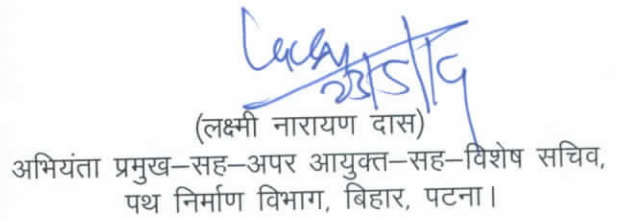 23/5/19
(लक्ष्मी नारायण दास)
अभियंता प्रमुख–सह–अपर आयुक्त–सह–विशेष सचिव,
पथ निर्माण विभाग, बिहार, पटना।